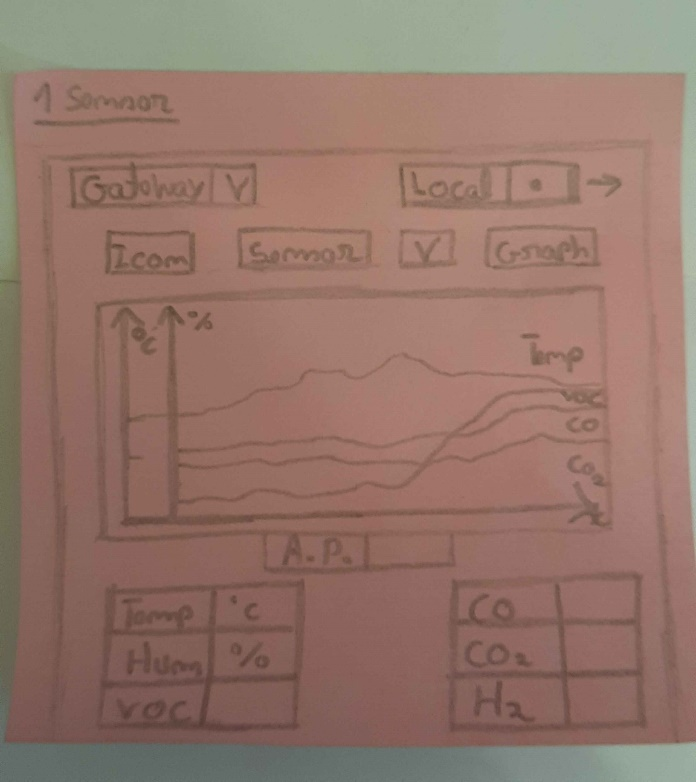 1 Sennor
Gateway V Local • →
Icon Sennor V Graph
°C % Temp
VOC
CO
CO₂
A.P.
Temp °C
Hum %
VOC
CO
CO₂
H₂